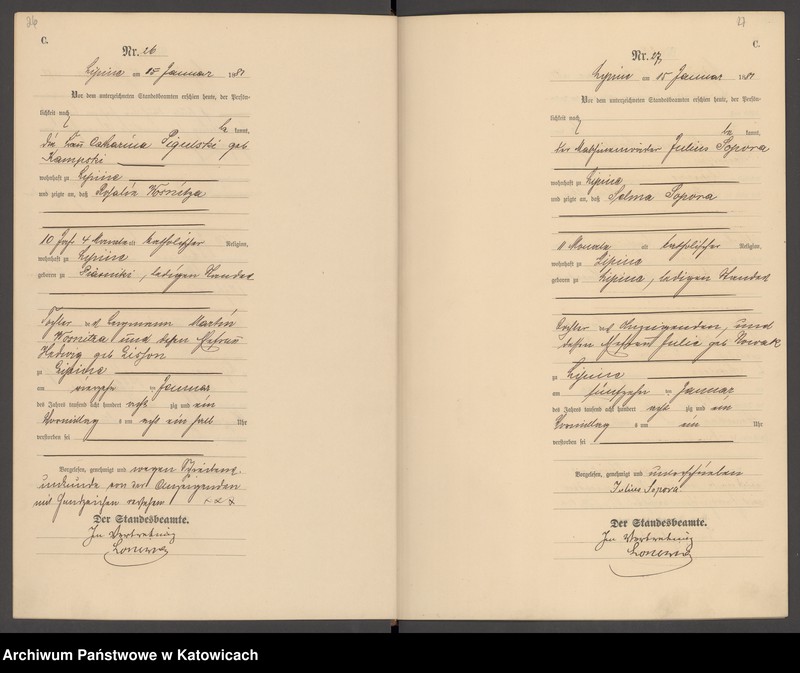 26
C.
Nr. 26
Lipine am 15 Januar 1881
Vor dem unterzeichneten Standesbeamten erschien heute, der Persön-
lichkeit nach
be kannt,
die Frau Catharina Pigulski geb
Kampski
wohnhaft zu Lipine
und zeigte an, daß Rosalie Kornitza
10 Jahr 4 Monate alt katholischer Religion,
wohnhaft zu Lipine
geboren zu Piasniki, ledigen Standes
Tochter des Bergmann Martin
Kornitza und dessen Ehefrau
Hedwig geb
zu Lipine
am vierzehn ten Januar
des Jahres tausend acht hundert acht zig und ein
Vormittag s um acht ein halb Uhr
verstorben sei
Vorgelesen, genehmigt und wegen Schreibens-
unkunde von der Anzeigenden
mit Handzeichen versehen
+++
Der Standesbeamte.
In Vertretung
27
C.
Nr. 27
Lipine am 15 Januar 1881
Vor dem unterzeichneten Standesbeamten erschien heute, der Persön-
lichkeit nach
be kannt,
der Maschinenwärter Julius Sopora
wohnhaft zu Lipine
und zeigte an, daß Selma Sopora
11 Monate alt katholischer Religion,
wohnhaft zu Lipine
geboren zu Lipine, ledigen Standes
Tochter des Anzeigenden, und
dessen Ehefrau Julie geb Nowak
zu Lipine
am fünfzehn ten Januar
des Jahres tausend acht hundert acht zig und ein
Vormittag s um ein Uhr
verstorben sei
Vorgelesen, genehmigt und unterschrieben
Julius Sopora
Der Standesbeamte.
In Vertretung
Archiwum Państwowe w Katowicach